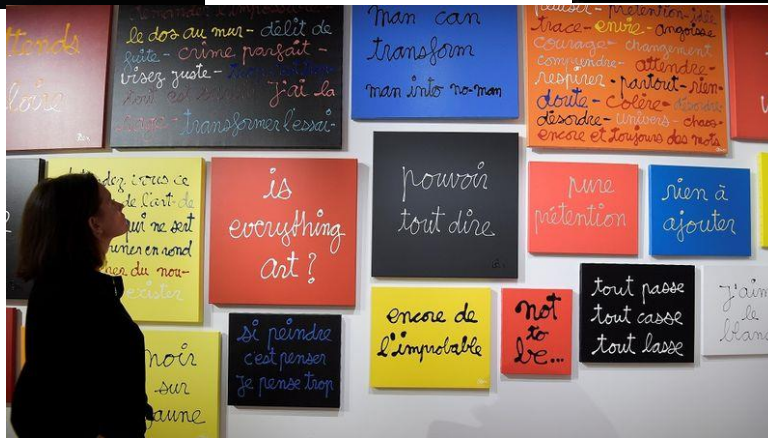 ttends
loire
le dos au mur - délit de
fuite - crime parfait -
visez juste -
j'ai la
rage - transformer l'essai -
man can
transform
man into no-man
trace - envie - angoisse
courage - changement
comprendre - attendre -
respirer - partout - rien -
doute - colère - désordre
désordre - univers - chaos -
encore et toujours des mots
dez vous ce
de l'art - de
qui ne sert
ourner en rond
du nou-
exister
is
everything
art?
pouvoir
tout dire
pure
prétention
rien à
ajouter
noir
sur
jaune
si peindre
c'est penser
je pense trop
encore de
l'improbable
not
to
be...
tout passe
tout casse
tout lasse
j'aim
le
blanc